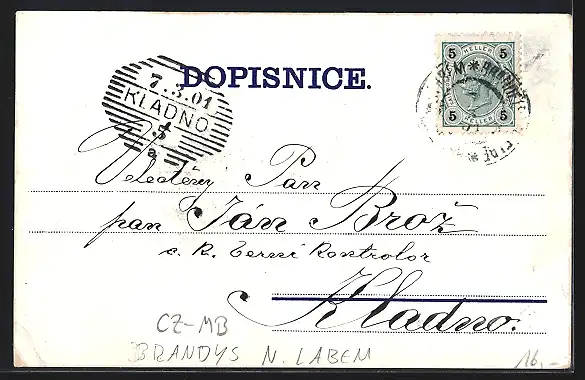 DOPISNICE.
5 HELLER 5
5 HELLER 5
7.3.01
KLADNO
a
Pan
pan Ján Brož
c. k. berní kontrolor
Kladno.
CZ-MB
BRANDYS N. LABEM
16,-